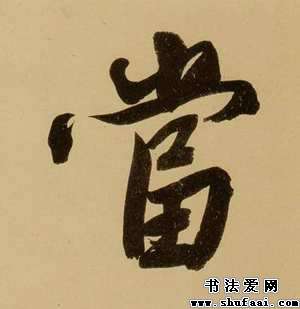 當
书法爱网
www.shufaai.com